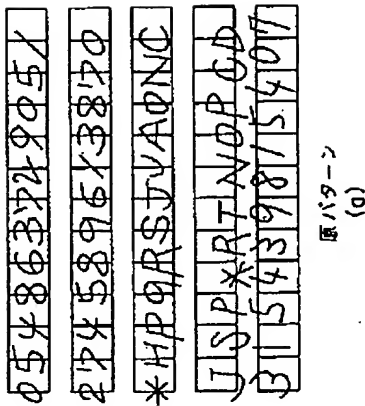 054863729051
274589613870
*HP9RSJUAONC
JSP*RTNOPCD
315439815407
原パターン
(a)